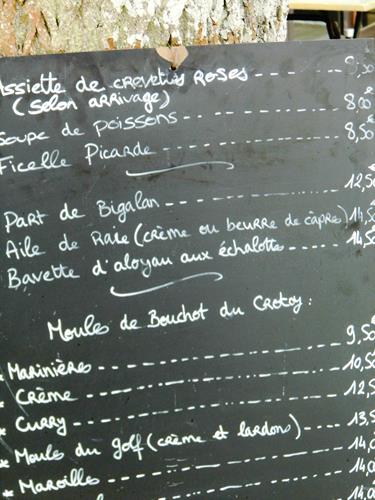 Assiette de crevettes roses ---- 9,50
(selon arrivage)
Soupe de poissons ---- 8,00€
Ficelle Picarde ---- 8,50€
Part de Bigalan ---- 12,50
Aile de Raie (crème ou beurre de câpre) 14,50
Bavette d'aloyau aux échalottes ---- 14,50
Moules de Bouchot du Crotoy :
Marinières ---- 9,50
* Crème ---- 10,50
* Curry ---- 12,5
* Moules du golf (crème et lardons) ---- 13,5
* Maroilles ---- 14,0
14,0